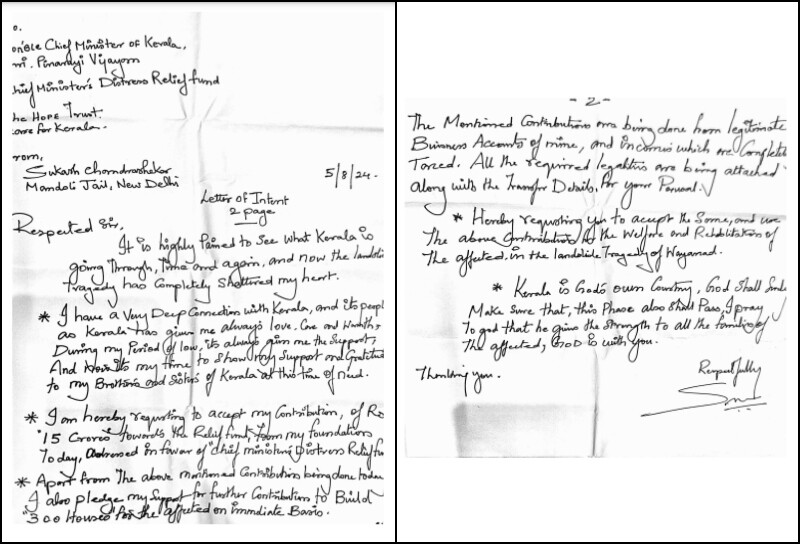 o.
on'ble Chief Minister of Kerala,
ri. Pinarayi Vijayan
hief Minister's Distress Relief fund
he Hope Trust.
ore for Kerala.
rom,
Sukash Chandrashekar
Mandoli Jail, New Delhi
5/8/24.
Letter of Intent
2 page
Respected Sir,
It is highly Pained to See what Kerala is
going Through, Time and again, and now the landslid
tragedy has Completely Shattered my heart.
* I have a Very Deep Connection with Kerala, and its peopl
as Kerala has given me always love. Care and Warmth,
During my Period of low, its always given me the Support,
And Now its my time to Show my Support and Gratitud
to my Brothers and Sisters of Kerala at this time of need.
* I am hereby requesting to accept my Contribution, of Rs
"15 Crores" towards the Relief fund, from my foundations
Today, Addressed in favor of "chief minister's Distress Relief fu
* Apart from The above mentioned Contribution being done today
I also pledge my Support for further Contribution to Build
"300 Houses" for the affected on immidiate Basis.
- 2 -
The Mentioned Contributions are being done from legitimate
Business Accounts of mine, and incomes which are Complete
Taxed. All the required legalities are being attached
along with the Transfer Details, for your Perusal.
* Hereby requesting you to accept the Same, and use
The above Contribution to the Welfare and Rehabilitation of
The affected, in the landslide Tragedy of Wayanad.
* Kerala is God's own Country, God Shall
Make Sure that, this Phase also Shall Pass, I pray
to god that he gives the Strength to all the families of
The affected, GOD is with you.
Thanking you.
Respectfully